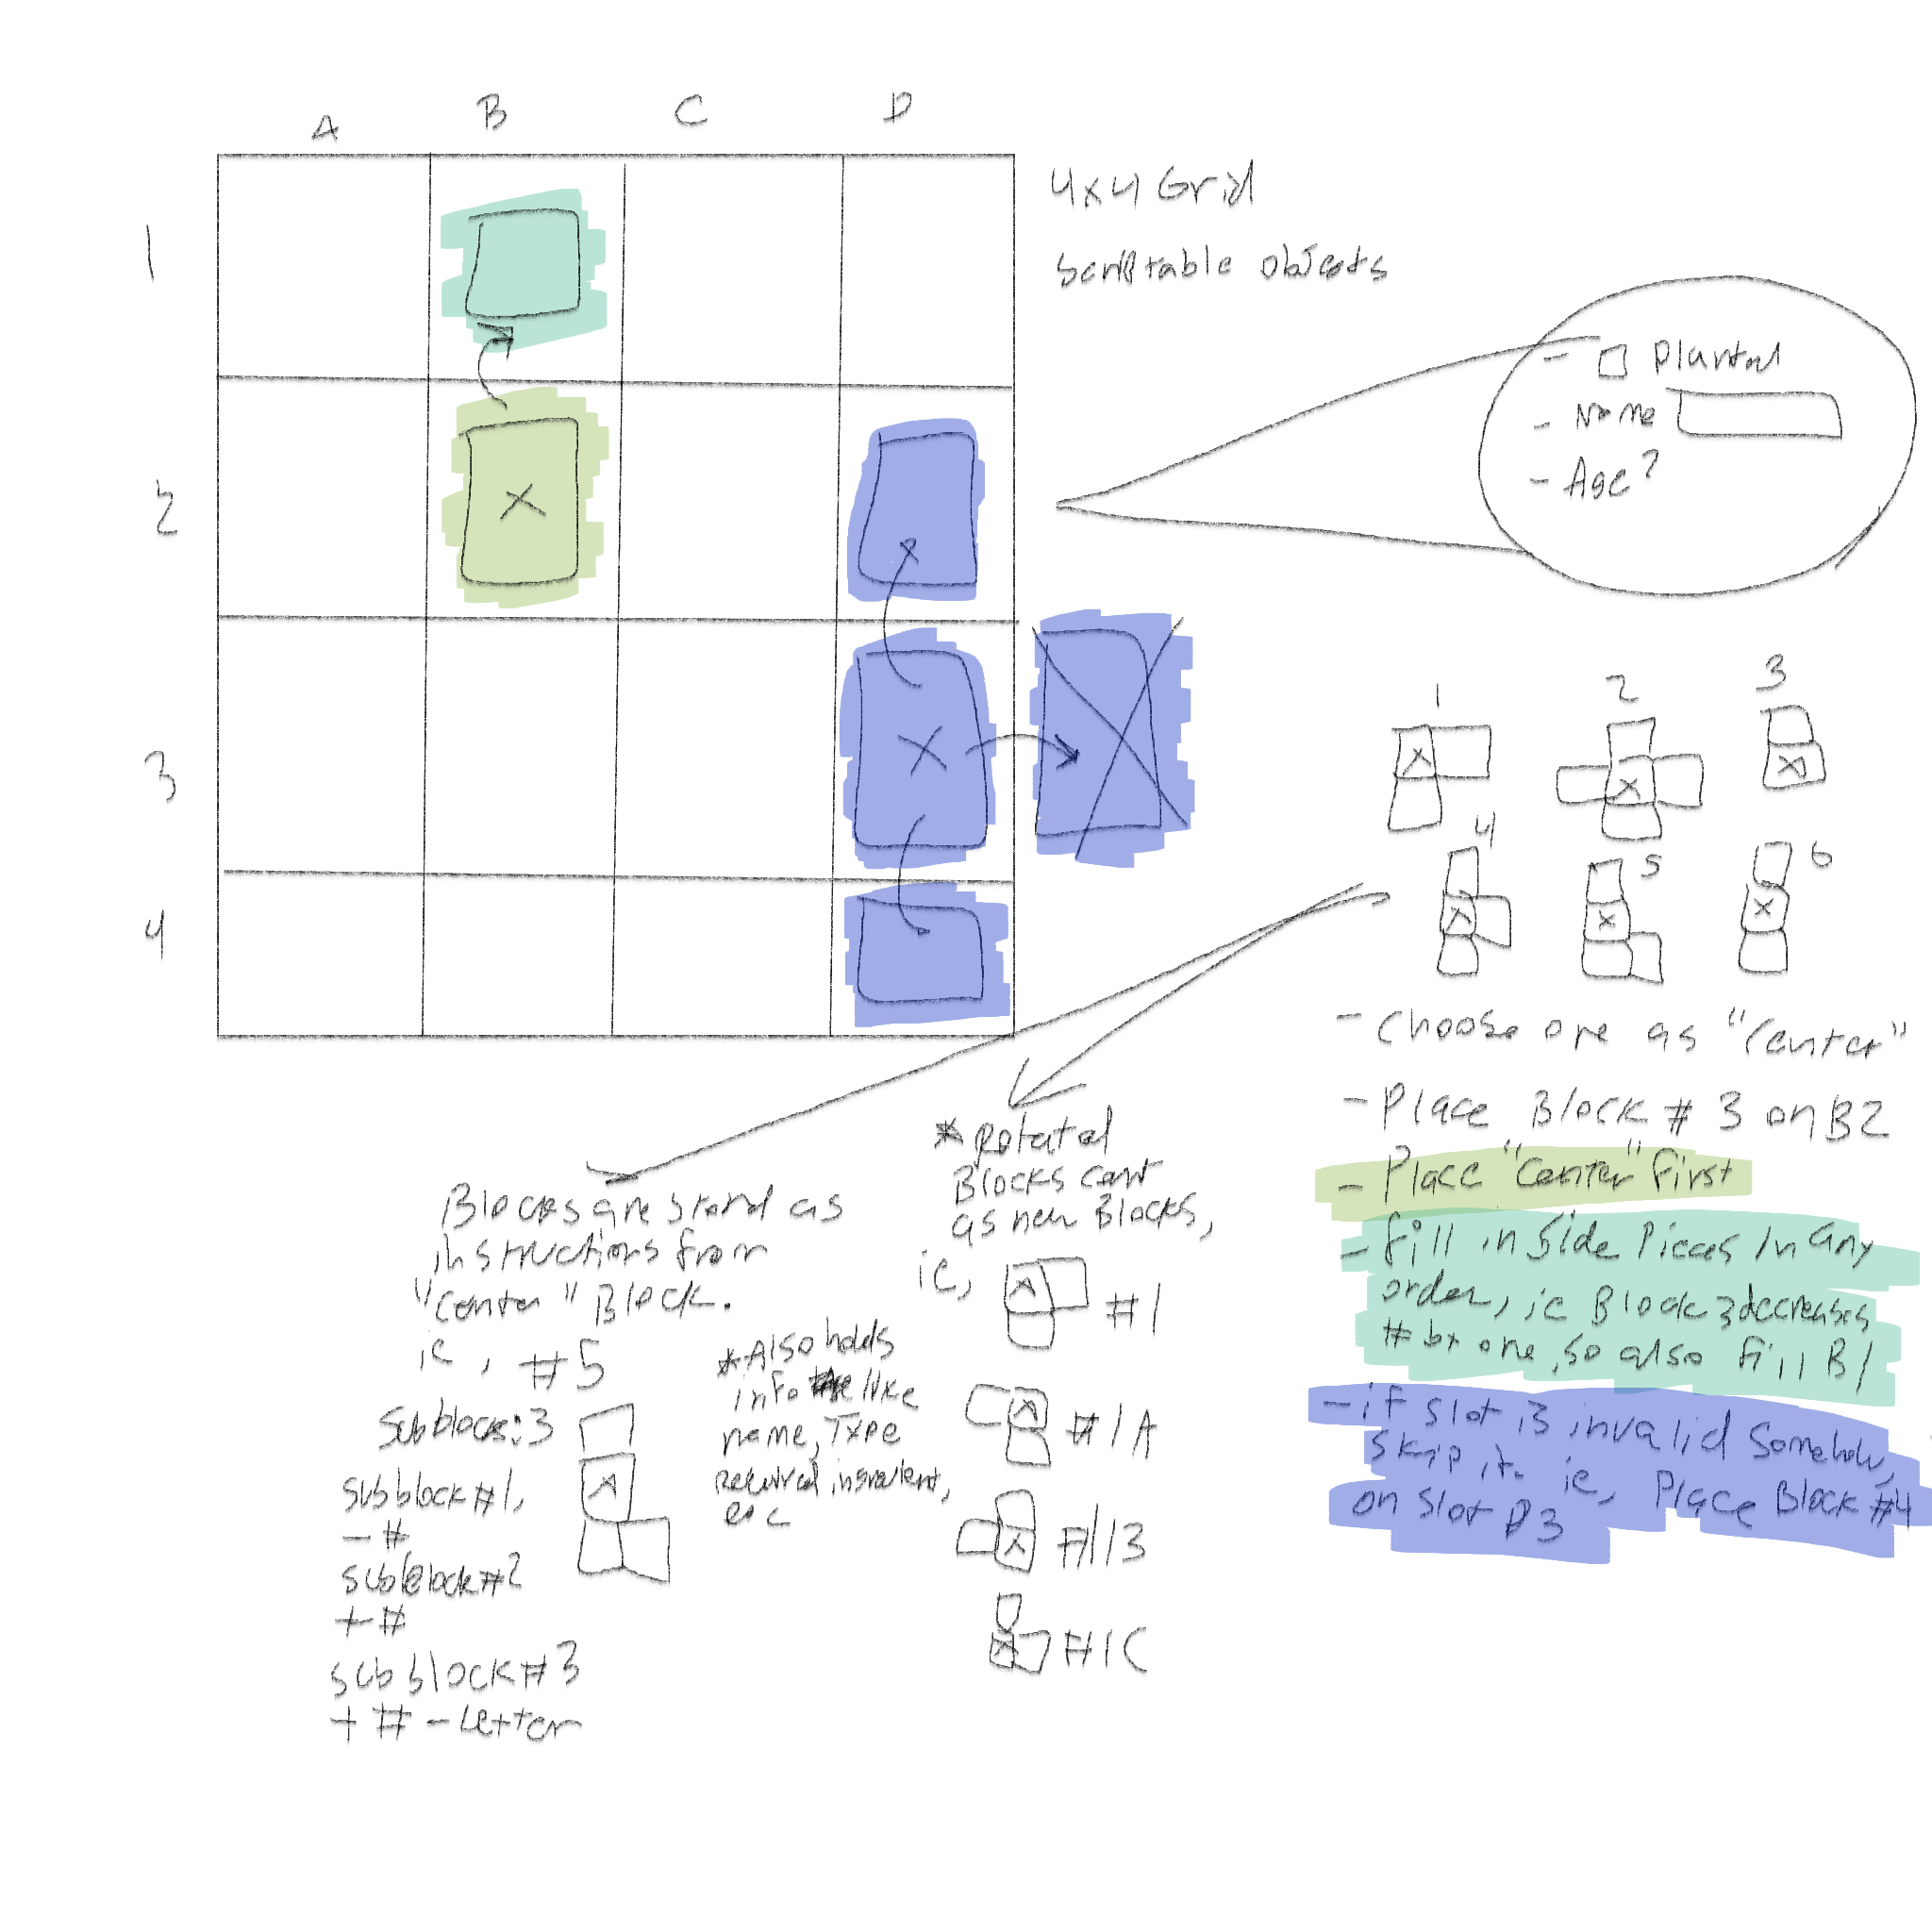 A B C D
1
2
3
4
4x4 Grid
scriptable objects
- Planted
- Name
- Age?
1 2 3
4 5 6
- Choose one as "Center"
- Place Block # 3 on B2
- Place "Center" First
- Fill in Side Pieces In any
order, ie Block 3 decreases
# by one, so also fill B1
- if slot is invalid Somehow,
skip it. ie, Place Block #4
on Slot D3
Blocks are stored as
instructions from
"Center" Block.
ie, #5
Subblocks: 3
subblock #1,
- #
subblock #2
+ #
subblock #3
+ # - Letter
* Also holds
info like
name, Type
required ingredient,
etc
* rotated
Blocks count
as new Blocks,
ie,
#1
#1A
#1B
#1C